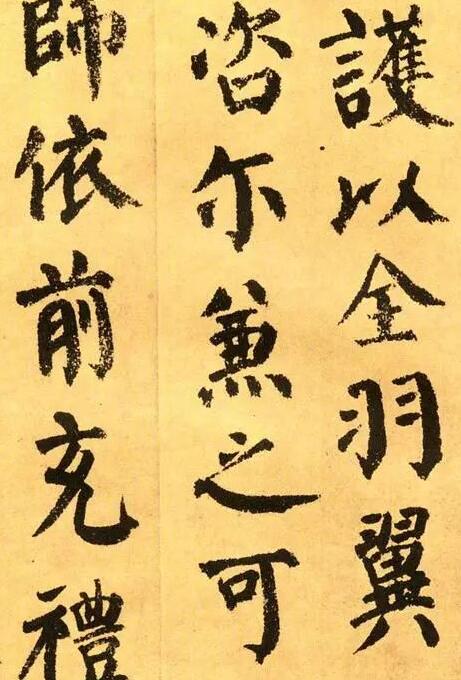 護以全羽翼
咨尓兼之可
師依前充禮